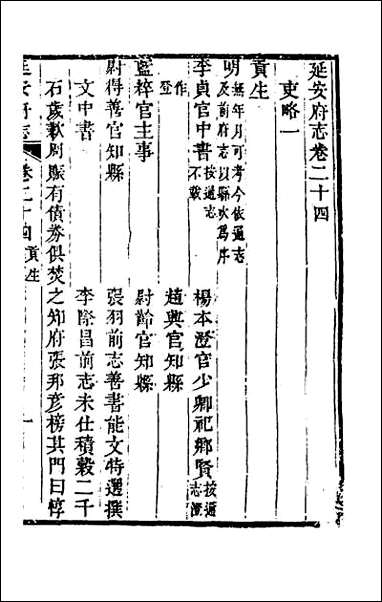 延安府志卷二十四
吏略一
貢生
明 無年月可考今依通志及前府志以縣次為序
李貞官中書 按通志不載 楊本澄官少卿祀鄉賢 按通志澄
作登 趙興官知縣
藍粹官主事 尉齡官知縣
尉得善官知縣 張羽前志善書能文特選撰
文中書 李際昌前志未仕積穀二千
石歲歉則賑有債劵俱焚之知府張那彥榜其門曰惇
延安府志 卷二十四 貢生 一